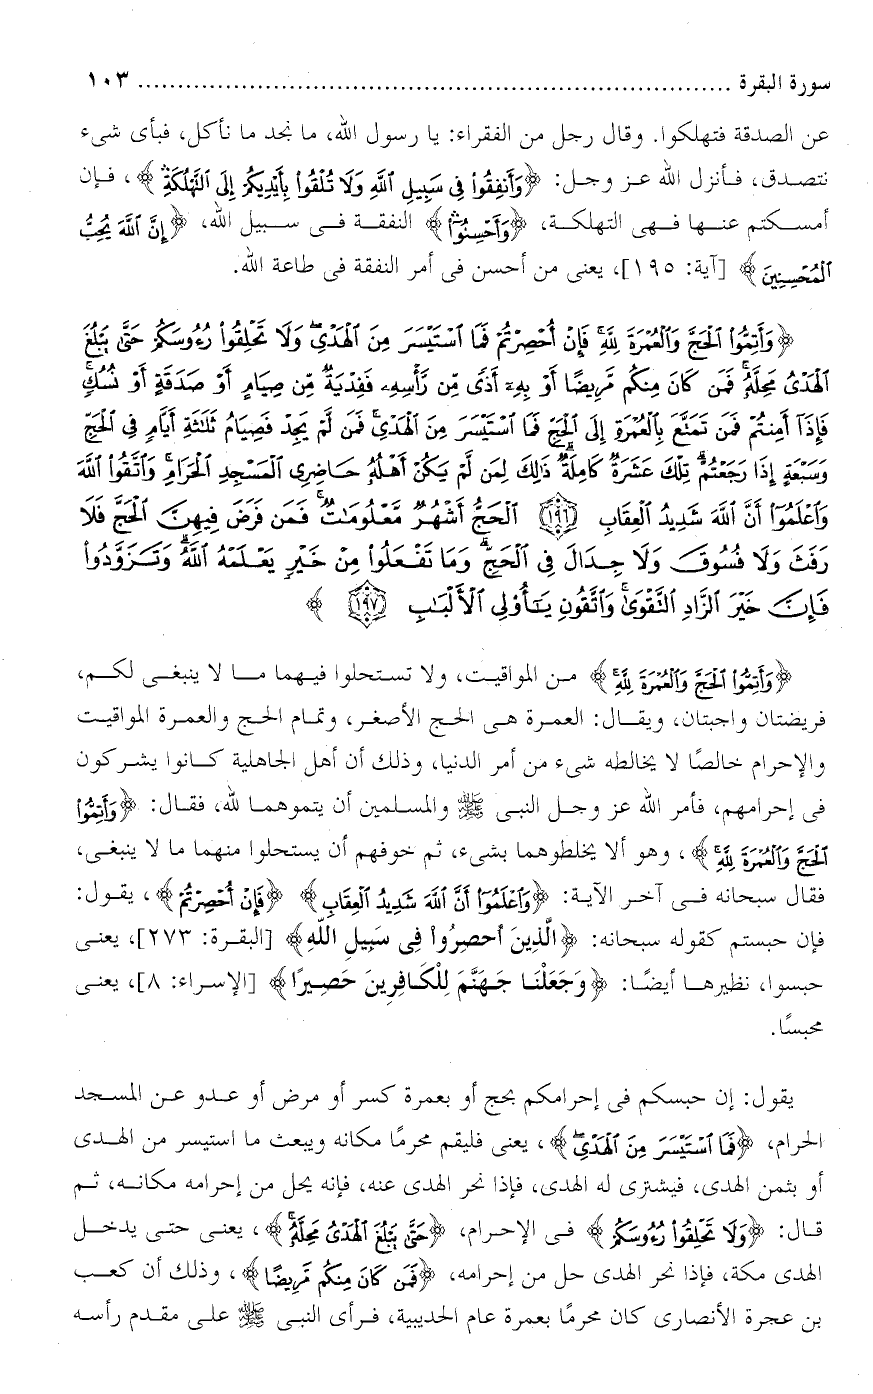 سورة البقرة ................................................................ ١٠٣
عن الصدقة فتهلكوا. وقال رجل من الفقراء: يا رسول الله، ما نجد ما نأكل، فبأى شىء
نتصدق، فأنزل الله عز وجل: ﴿وَأَنفِقُواْ فِي سَبِيلِ اللَّهِ وَلَا تُلْقُواْ بِأَيْدِيكُمْ إِلَى التَّهْلُكَةِ﴾، فإن
أمسكتم عنها فهى التهلكة، ﴿وَأَحْسِنُوَاْ﴾ النفقة فى سبيل الله، ﴿إِنَّ اللَّهَ يُحِبُّ
الْمُحْسِنِينَ﴾ [آية: ١٩٥]، يعنى من أحسن فى أمر النفقة فى طاعة الله.
﴿وَأَتِمُّواْ الْحَجَّ وَالْعُمْرَةَ لِلَّهِ فَإِنْ أُحْصِرْتُمْ فَمَا اسْتَيْسَرَ مِنَ الْهَدْيِ وَلَا تَحْلِقُواْ رُءُوسَكُمْ حَتَّى بَبْلُغَ
الْهَدْيُ مَحِلَّهُ فَمَن كَانَ مِنكُم مَّرِيضًا أَوْ بِهِ أَذًى مِّن رَّأْسِهِ فَفِدْيَةٌ مِّن صِيَامٍ أَوْ صَدَقَةٍ أَوْ نُسُكٍ
فَإِذَا أَمِنتُمْ فَمَن تَمَتَّعَ بِالْعُمْرَةِ إِلَى الْحَجِّ فَمَا اسْتَيْسَرَ مِنَ الْهَدْيِ فَمَن لَّمْ يَجِدْ فَصِيَامُ ثَلَاثَةِ أَيَّامٍ فِي الْحَجِّ
وَسَبْعَةٍ إِذَا رَجَعْتُمْ تِلْكَ عَشَرَةٌ كَامِلَةٌ ذَلِكَ لِمَن لَّمْ يَكُنْ أَهْلُهُ حَاضِرِي الْمَسْجِدِ الْحَرَامِ وَاتَّقُواْ اللَّهَ
وَاعْلَمُواْ أَنَّ اللَّهَ شَدِيدُ الْعِقَابِ ١٩٦ الْحَجُّ أَشْهُرٌ مَّعْلُومَاتٌ فَمَن فَرَضَ فِيهِنَّ الْحَجَّ فَلَا
رَفَثَ وَلَا فُسُوقَ وَلَا جِدَالَ فِي الْحَجِّ وَمَا تَفْعَلُواْ مِنْ خَيْرٍ يَعْلَمْهُ اللَّهُ وَتَزَوَّدُواْ
فَإِنَّ خَيْرَ الزَّادِ التَّقْوَى وَاتَّقُونِ يَا أُوْلِي الْأَلْبَابِ ١٩٧﴾
﴿وَأَتِمُّواْ الْحَجَّ وَالْعُمْرَةَ لِلَّهِ﴾ من المواقيت، ولا تستحلوا فيهما ما لا ينبغى لكم،
فريضتان واجبتان، ويقال: العمرة هى الحج الأصغر، وتمام الحج والعمرة المواقيت
والإحرام خالصًا لا يخالطه شىء من أمر الدنيا، وذلك أن أهل الجاهلية كانوا يشركون
فى إحرامهم، فأمر الله عز وجل النبى ﷺ والمسلمين أن يتموهما لله، فقال: ﴿وَأَتِمُّواْ
الْحَجَّ وَالْعُمْرَةَ لِلَّهِ﴾، وهو ألا يخلطوهما بشىء، ثم خوفهم أن يستحلوا منهما ما لا ينبغى،
فقال سبحانه فى آخر الآية: ﴿وَاعْلَمُواْ أَنَّ اللَّهَ شَدِيدُ الْعِقَابِ﴾ ﴿فَإِنْ أُحْصِرْتُمْ﴾، يقول:
فإن حبستم كقوله سبحانه: ﴿الَّذِينَ أُحصِرُواْ فِى سَبِيلِ اللَّهِ﴾ [البقرة: ٢٧٣]، يعنى
حبسوا، نظيرها أيضًا: ﴿وَجَعَلْنَا جَهَنَّمَ لِلْكَافِرِينَ حَصِيرًا﴾ [الإسراء: ٨]، يعنى
محبسًا.
يقول: إن حبسكم فى إحرامكم بحج أو بعمرة كسر أو مرض أو عدو عن المسجد
الحرام، ﴿فَمَا اسْتَيْسَرَ مِنَ الْهَدْيِ﴾، يعنى فليقم محرمًا مكانه ويبعث ما استيسر من الهدى
أو بثمن الهدى، فيشترى له الهدى، فإذا نحر الهدى عنه، فإنه يحل من إحرامه مكانه، ثم
قال: ﴿وَلَا تَحْلِقُواْ رُءُوسَكُمْ﴾ فى الإحرام، ﴿حَتَّى بَبْلُغَ الْهَدْيُ مَحِلَّهُ﴾، يعنى حتى يدخل
الهدى مكة، فإذا نحر الهدى حل من إحرامه، ﴿فَمَن كَانَ مِنكُم مَّرِيضًا﴾، وذلك أن كعب
بن عجرة الأنصارى كان محرمًا بعمرة عام الحديبية، فرأى النبى ﷺ على مقدم رأسه